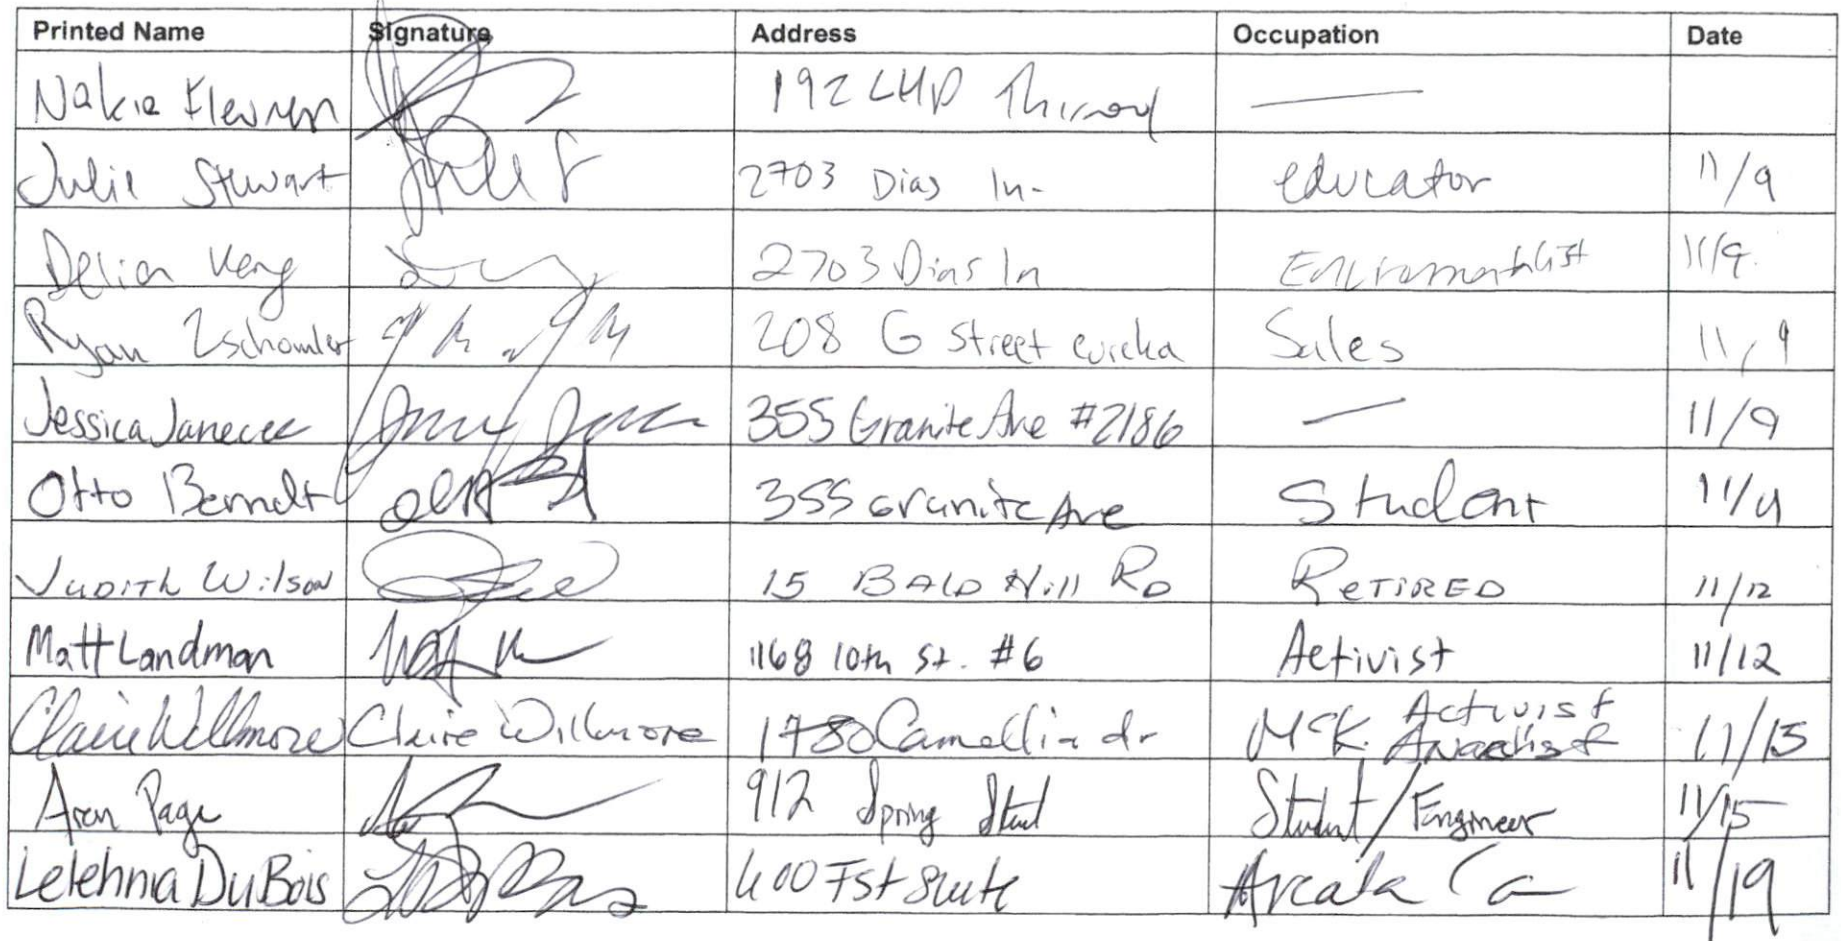 Printed Name Signature Address Occupation Date
Nakia 192 —
Julie Stewart 2703 Dias ln- educator 11/9
Delia Keng 2703 Dias ln 11/9
Ryan Zschomler 208 G Street eureka Sales 11/9
Jessica Janecek 355 Granite Ave #2186 — 11/9
Otto Berndt 355 Granite Ave Student 11/9
Judith Wilson 15 BALD Hill RD RETIRED 11/12
Matt Landman 1168 10th St. #6 Activist 11/12
Claire Willmore Claire Willmore 1780 Camellia dr McK. Activist 11/15
Aren Page 912 Spring Street Student/Engineer 11/15
Lelehnia DuBois 400 F St Suite Arcata Ca 11/19